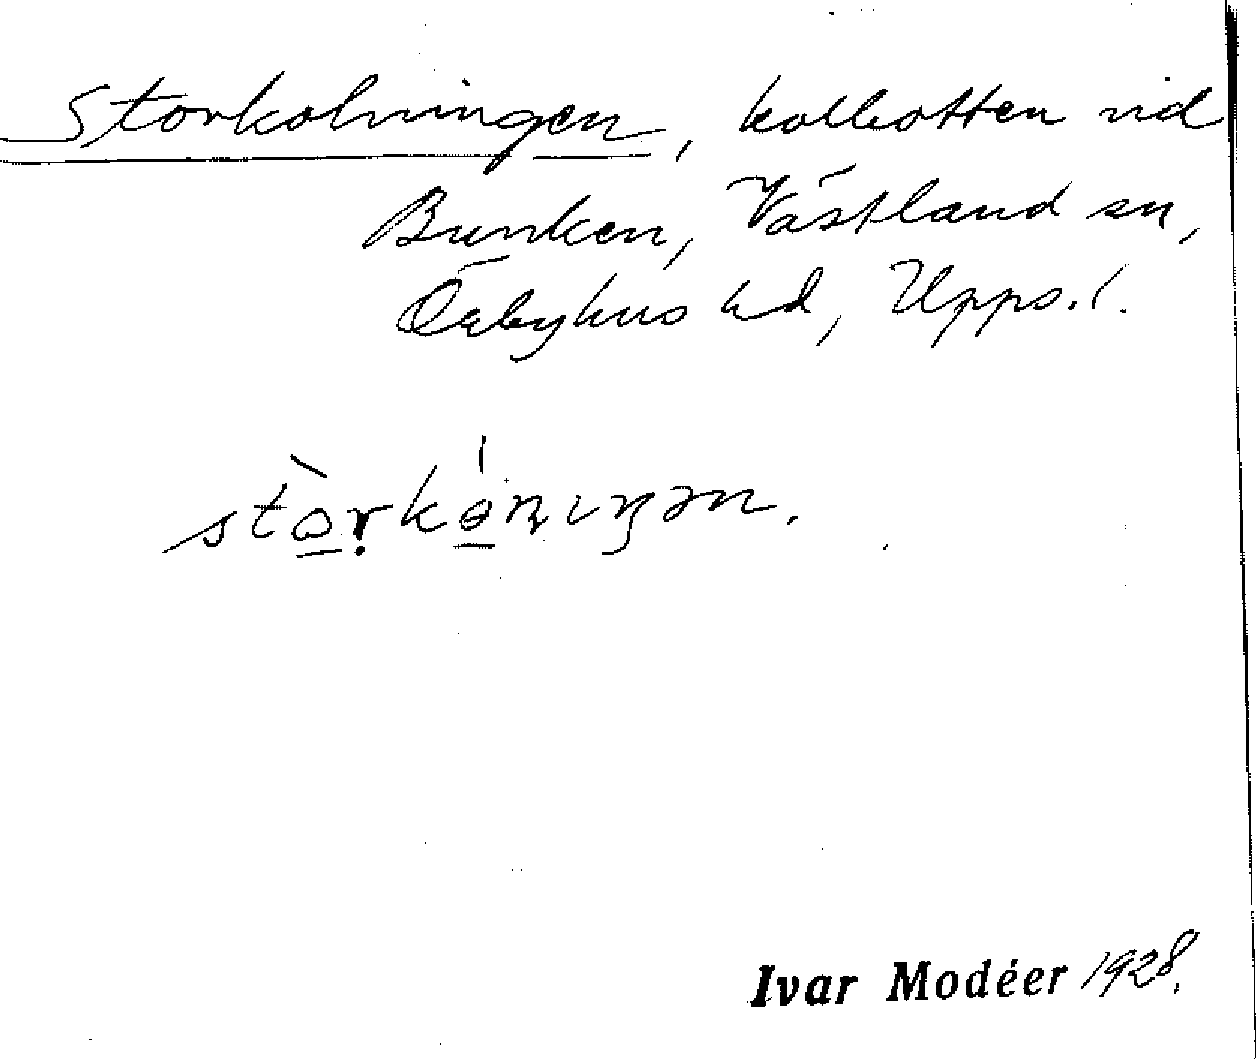 Storkolningen, kolbotten vid
Bunken, Västland sn,
Örbyhus hd, Upps. l.
stòrkó̱nıŋən.
Ivar Modéer 1928.